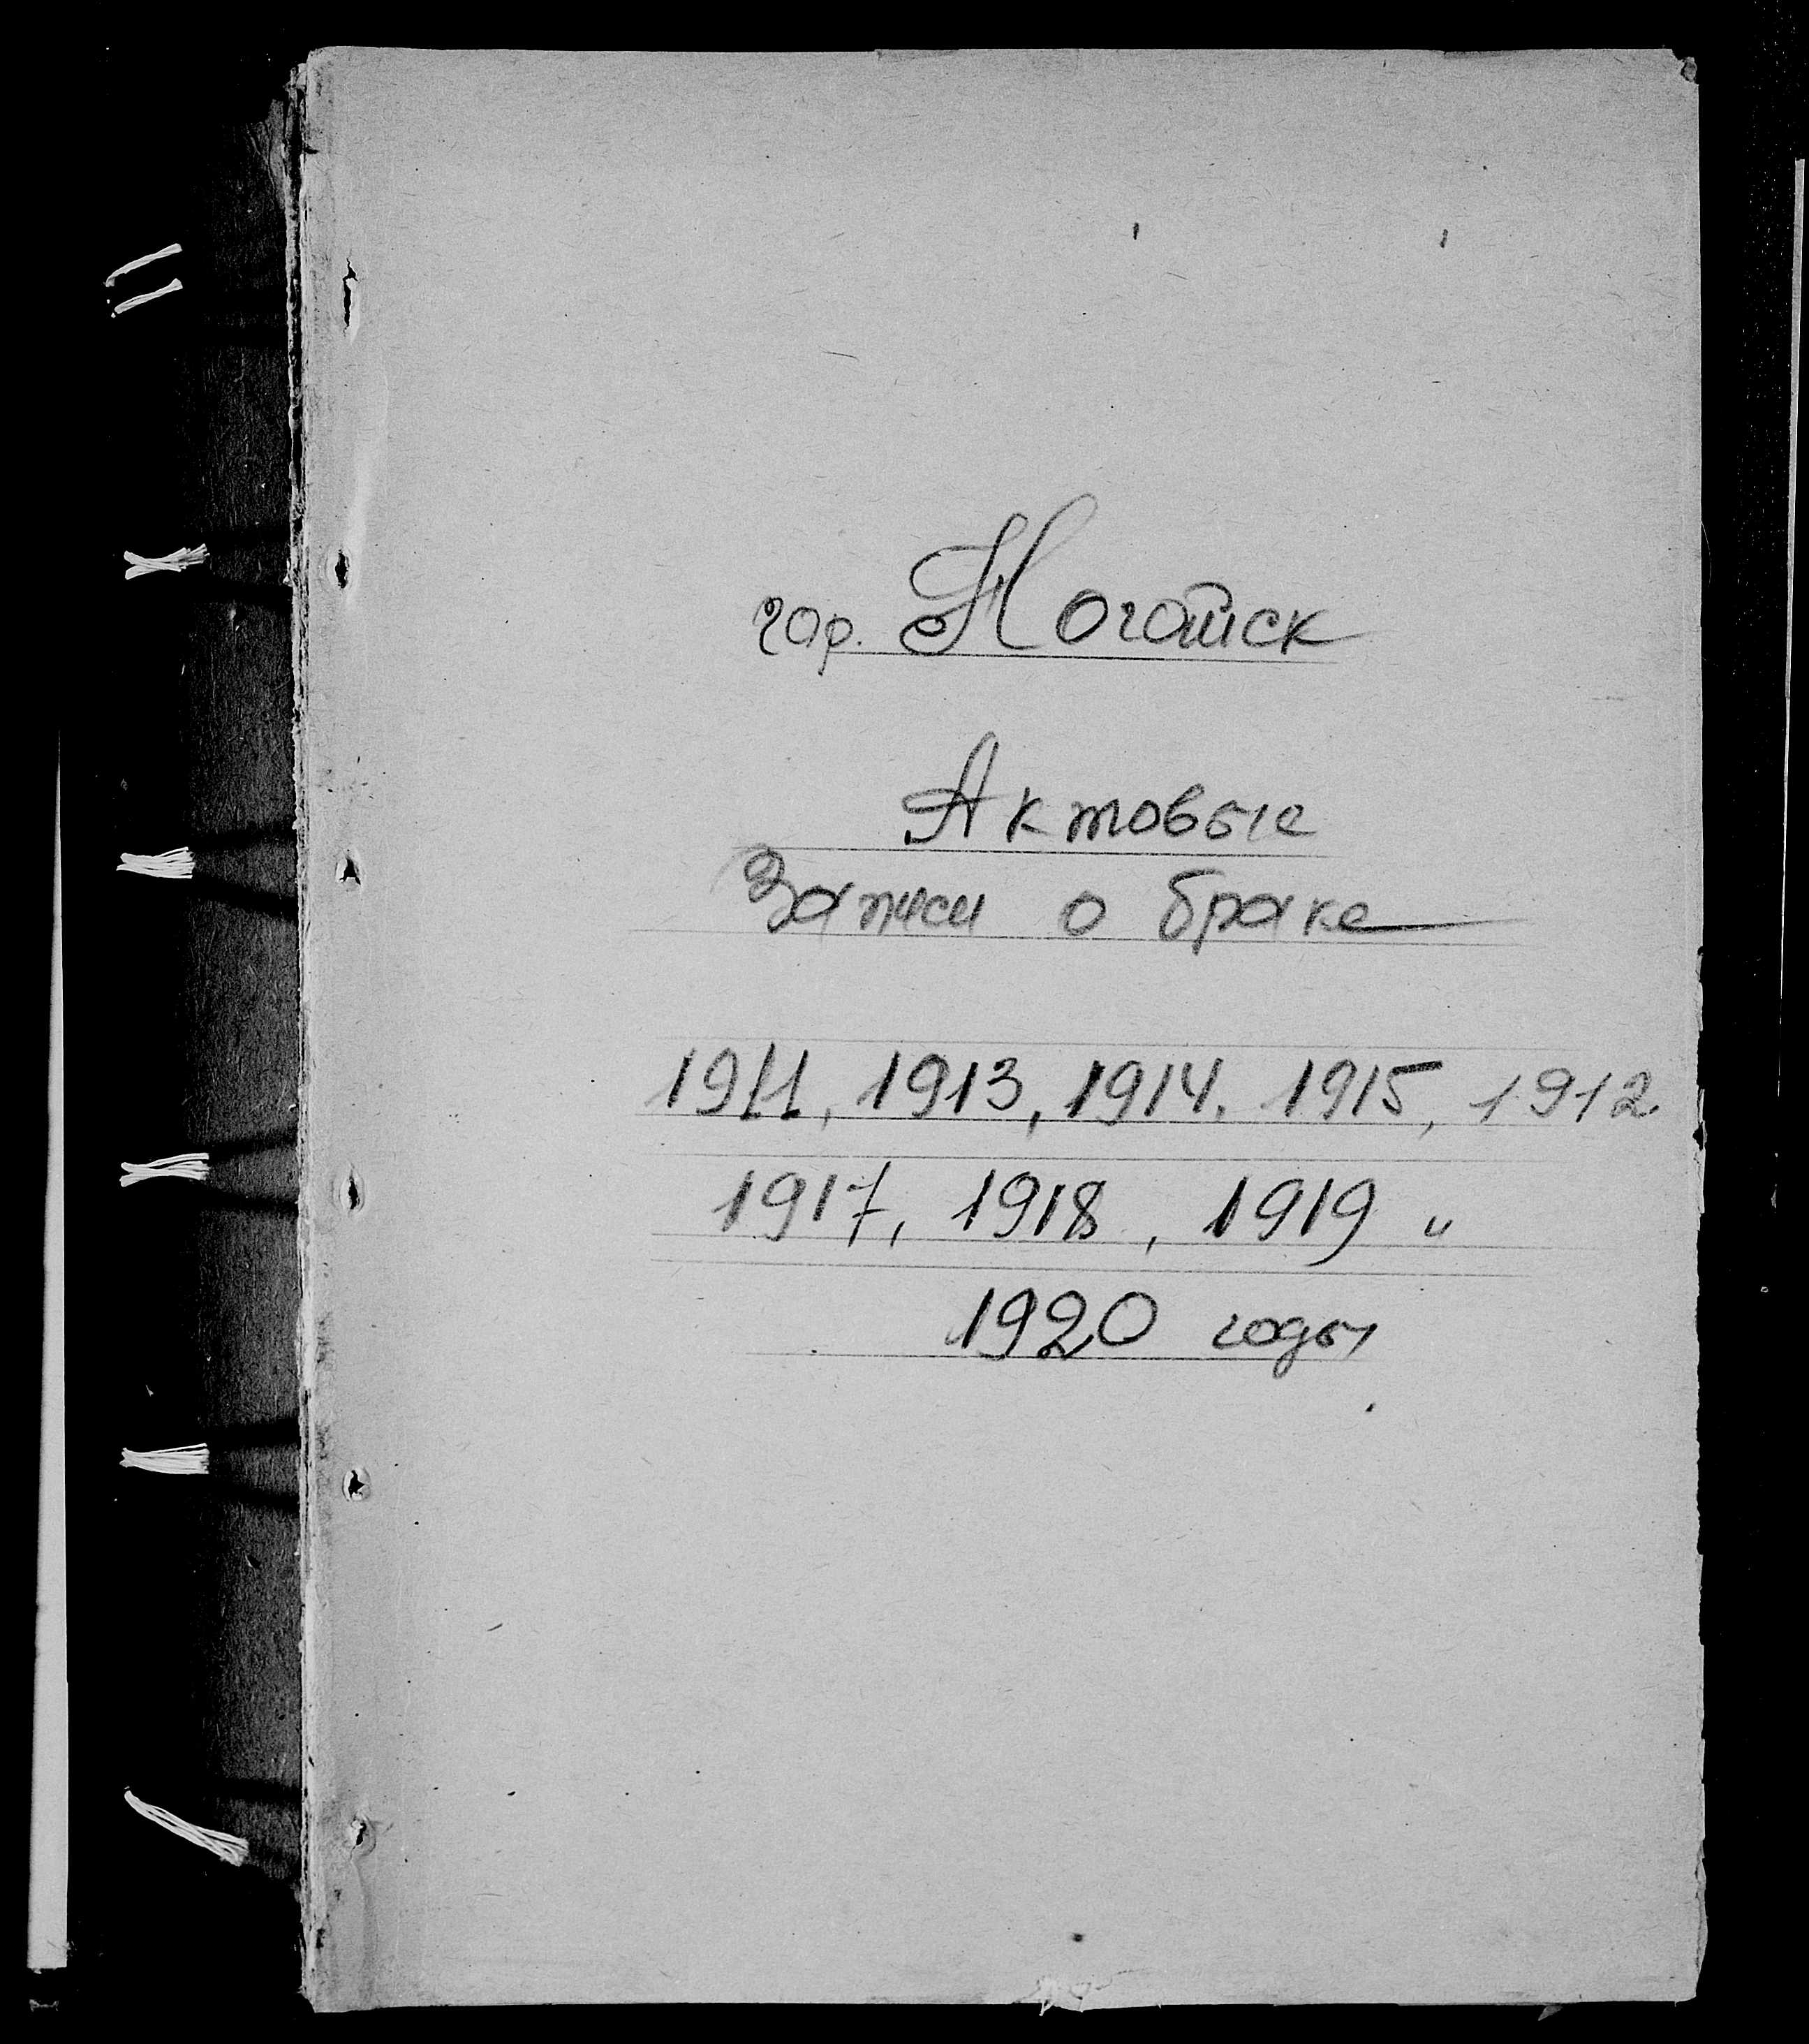 гор. Ногайск
Актовые
Записи о браке
1911, 1913, 1914. 1915, 1912
1917, 1918, 1919 и
1920 годы